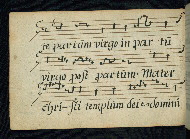 te partum virgo in par tū
virgo post partum Mater
Chri- sti templum dei domini